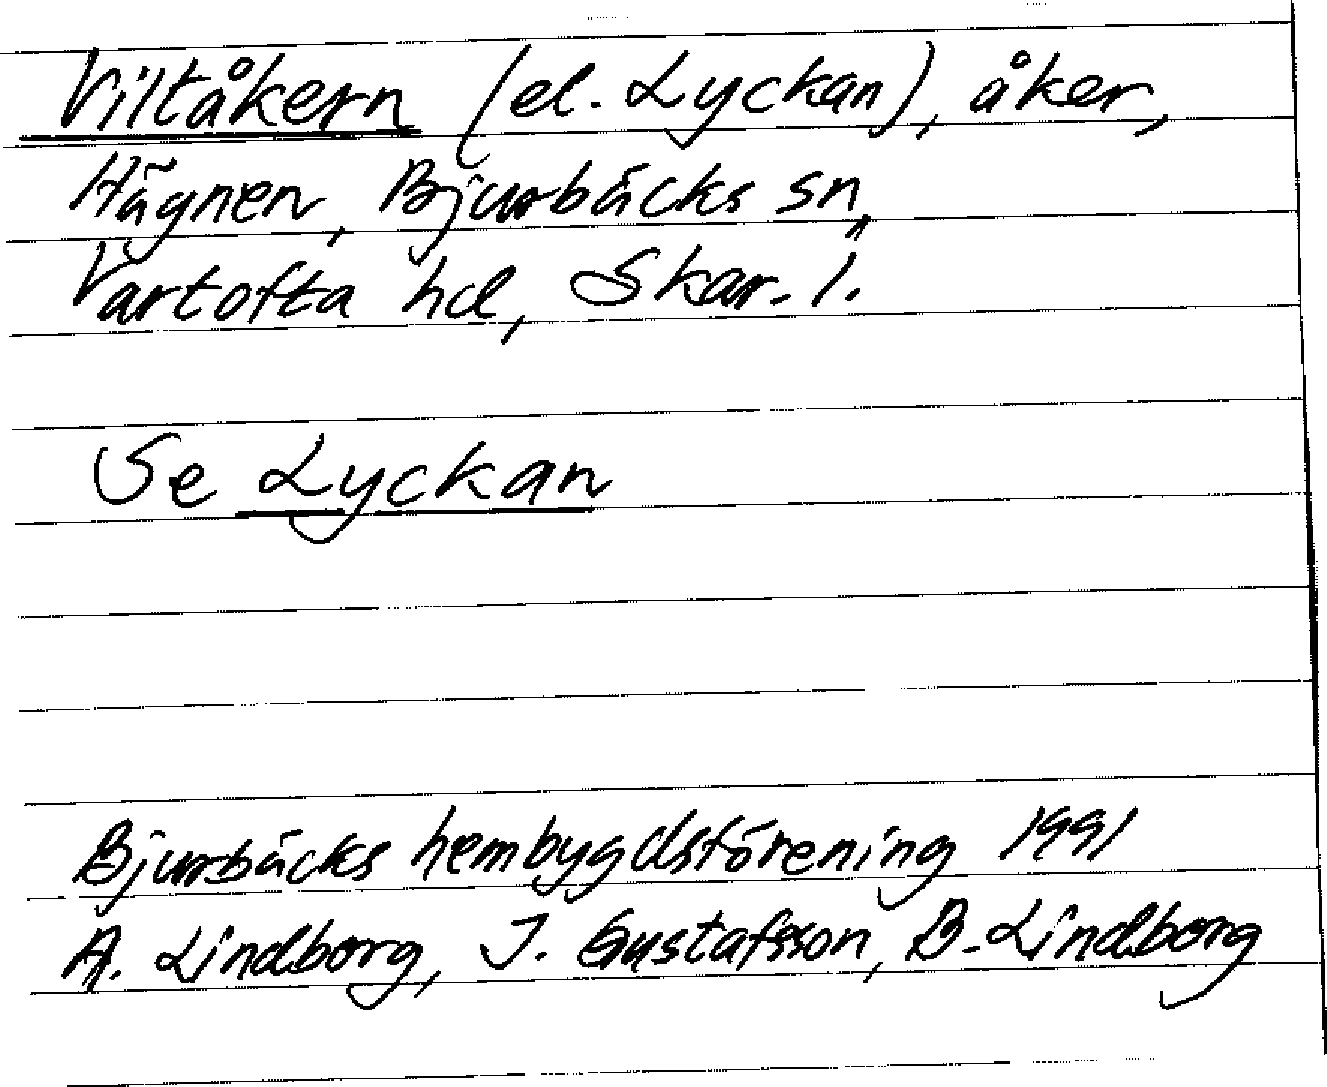 Viltåkern (el. Lyckan), åker,
Hägnen, Bjurbäcks sn,
Vartofta hd, Skar. l.
Se Lyckan
Bjurbäcks hembygdsförening 1991
A. Lindborg, J. Gustafsson, B. Lindborg